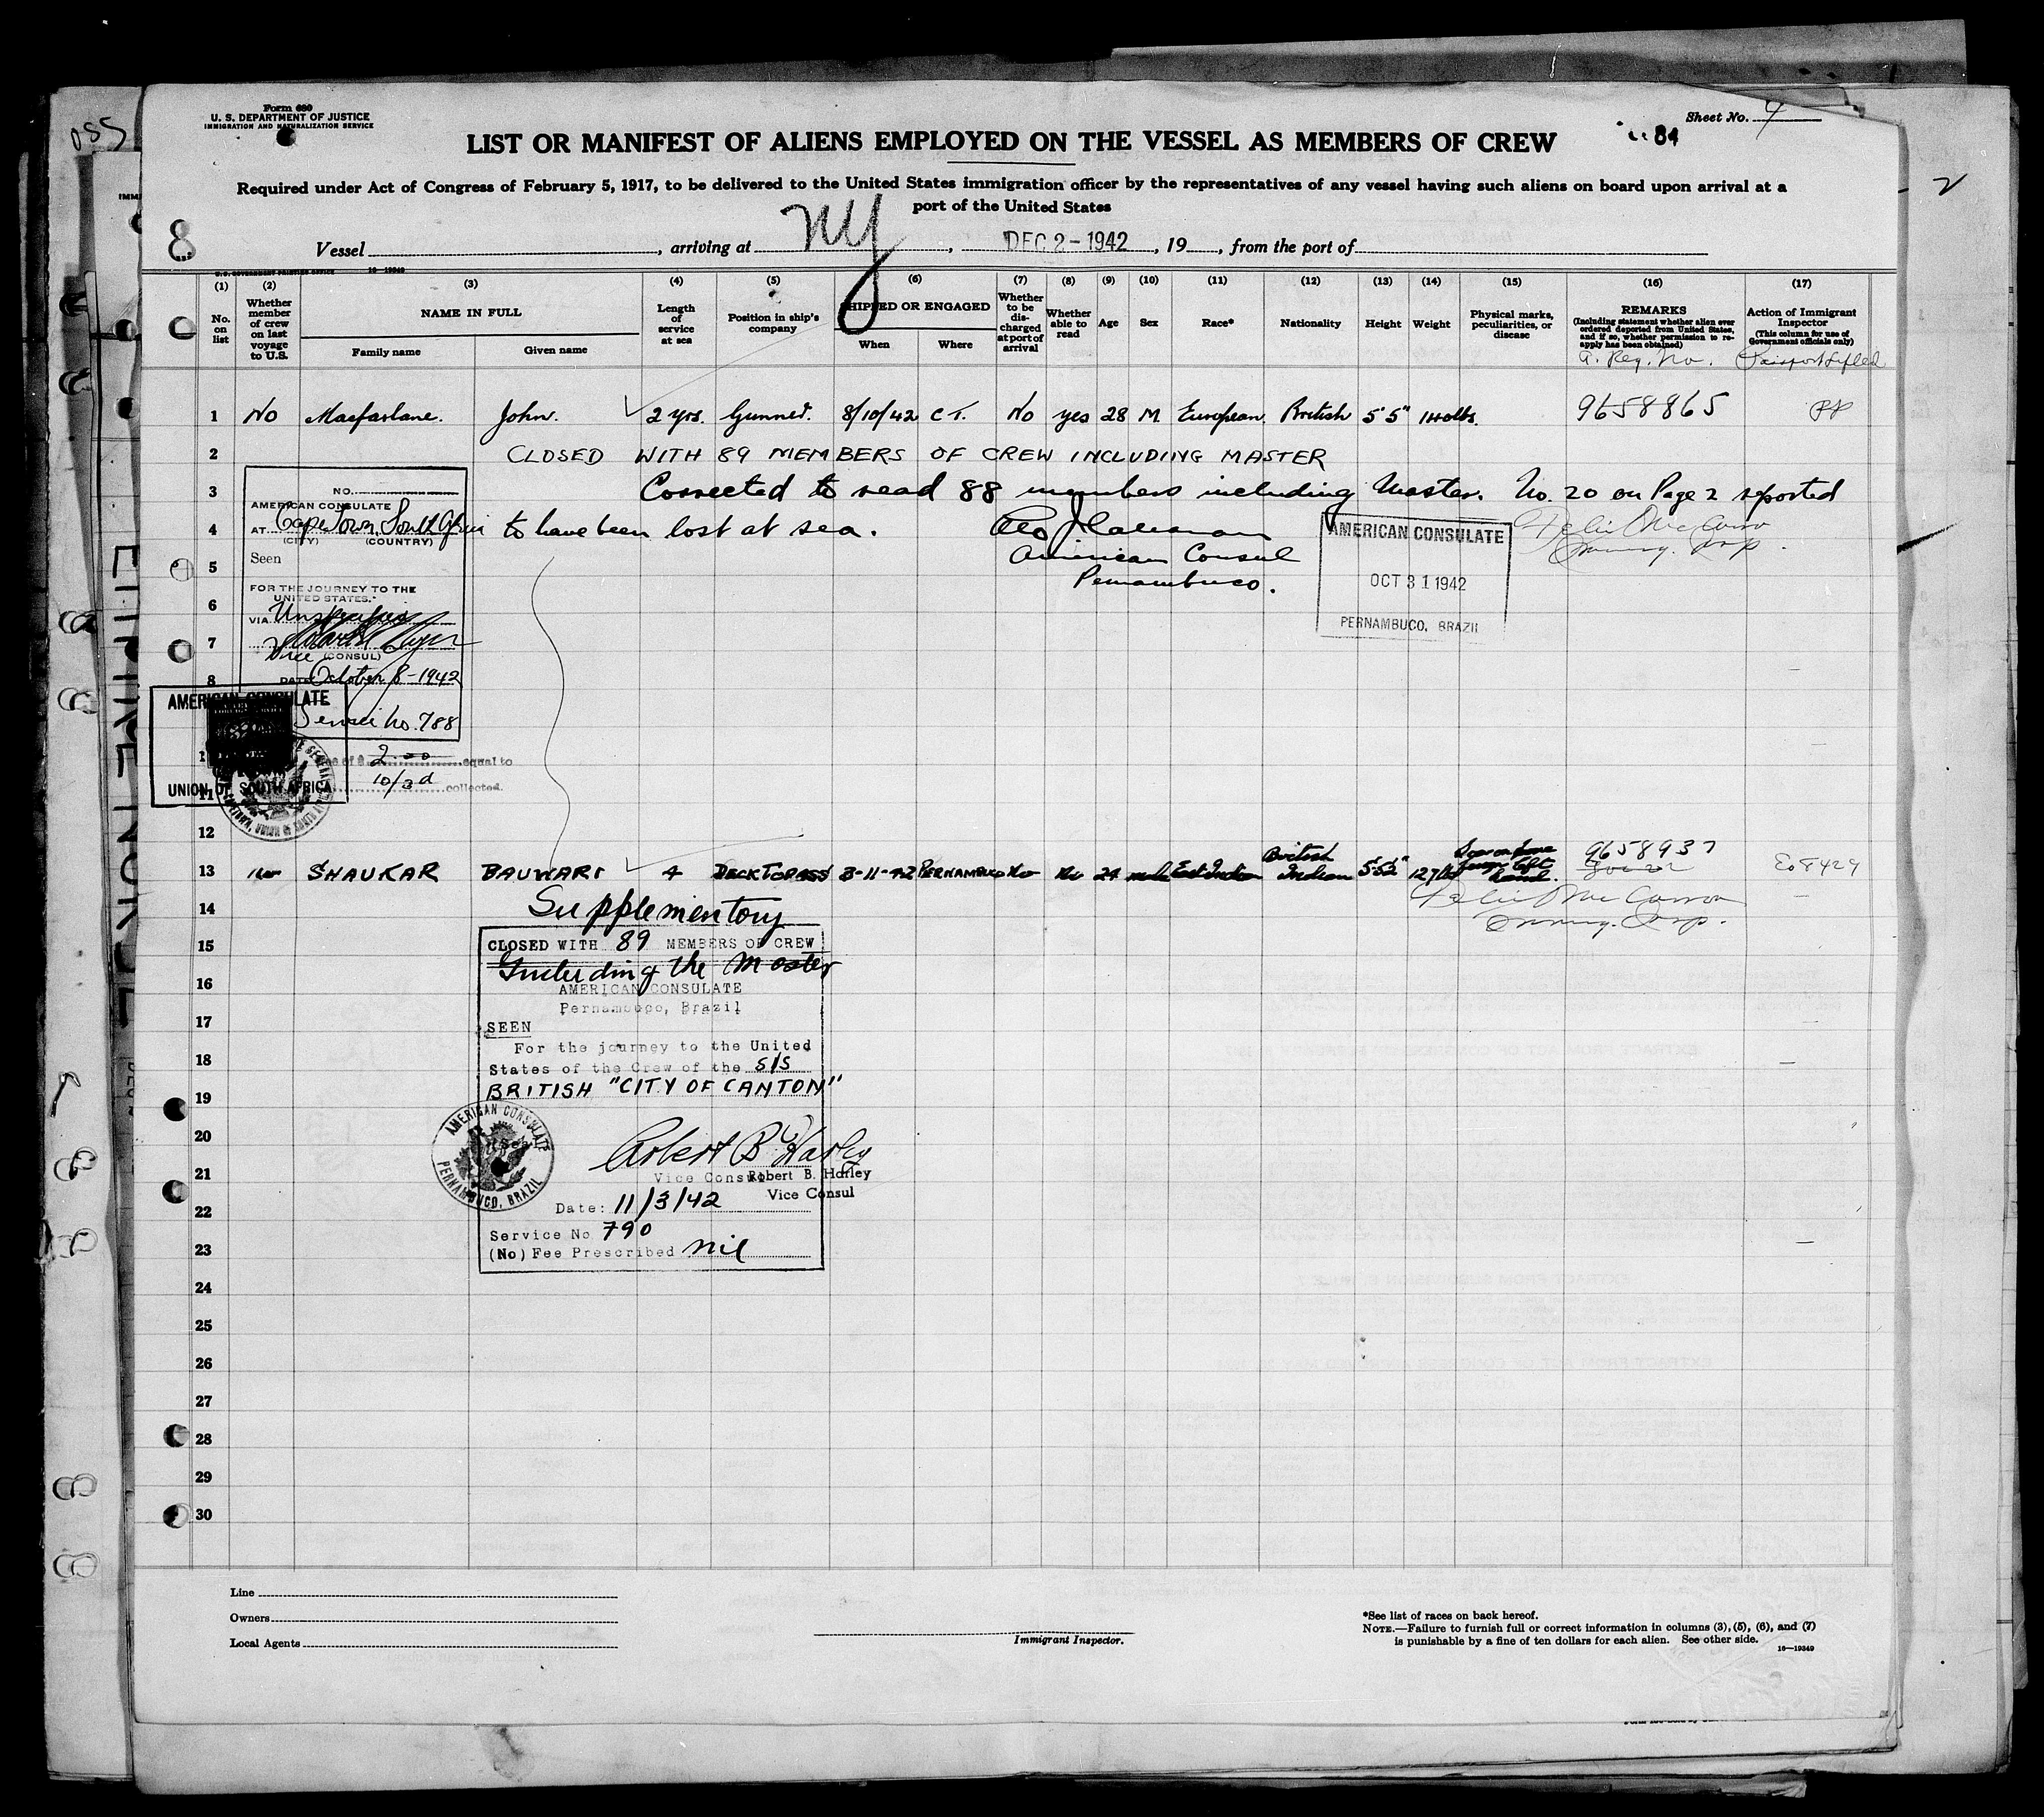 Form 680
U. S. DEPARTMENT OF JUSTICE
IMMIGRATION AND NATURALIZATION SERVICE
Sheet No. 4
84
LIST OR MANIFEST OF ALIENS EMPLOYED ON THE VESSEL AS MEMBERS OF CREW
Required under Act of Congress of February 5, 1917, to be delivered to the United States immigration officer by the representatives of any vessel having such aliens on board upon arrival at a
port of the United States
8
Vessel, arriving at NY, DEC 2-1942, 19, from the port of
(1) No. on list
(2) Whether member of crew on last voyage to U.S.
(3) NAME IN FULL Family name Given name
(4) Length of service at sea
(5) Position in ship's company
(6) SHIPPED OR ENGAGED When Where
(7) Whether to be discharged at port of arrival
(8) Whether able to read
(9) Age
(10) Sex
(11) Race*
(12) Nationality
(13) Height
(14) Weight
(15) Physical marks, peculiarities, or disease
(16) REMARKS (Including statement whether alien ever ordered deported from United States, and if so, whether permission to reapply has been obtained) A. Reg. No.
(17) Action of Immigrant Inspector (This column for use of Government officials only) Passport Lifted
1 No Macfarlane. John. 2 yrs. Gunner. 8/10/42 C T. No yes 28 M. European. British 5'5" 140lbs. 9658865 PP
2 CLOSED WITH 89 MEMBERS OF CREW INCLUDING MASTER
3 Corrected to read 88 members including Master. No. 20 on Page 2 reported
4 to have been lost at sea.
American Consul
Pernambuco.
AMERICAN CONSULATE
OCT 31 1942
PERNAMBUCO, BRAZIL
NO.
AMERICAN CONSULATE
AT Cape Town, South Africa
(CITY) (COUNTRY)
Seen
FOR THE JOURNEY TO THE
UNITED STATES.
VIA Unspecified
Vice (CONSUL)
DATE October 8-1942
Service No. 788
AMERICAN CONSULATE
UNION OF SOUTH AFRICA
2.00 equal to
10/3d collected.
5
6
7
8
11
12
13 SHAUKAR BAUWARI 4 DECK TOPASS 3-11-42 PERNAMBUCO No No 24 male East Indian British Indian 5'5½" 127lbs 9658937 E08429
14 Supplementory
15 CLOSED WITH 89 MEMBERS OF CREW
16 Including the Master
AMERICAN CONSULATE
Pernambuco, Brazil
17 SEEN
For the journey to the United
18 States of the Crew of the S/S
19 BRITISH "CITY OF CANTON"
AMERICAN CONSULATE
PERNAMBUCO, BRAZIL
20 Robert B. Harley
21 Vice Consul Robert B. Harley
Vice Consul
22 Date: 11/3/42
Service No 790
23 (No) Fee Prescribed nil
24
25
26
27
28
29
30
Line
Owners
Local Agents
Immigrant Inspector.
*See list of races on back hereof.
NOTE.—Failure to furnish full or correct information in columns (3), (5), (6), and (7)
is punishable by a fine of ten dollars for each alien. See other side.
16—19349